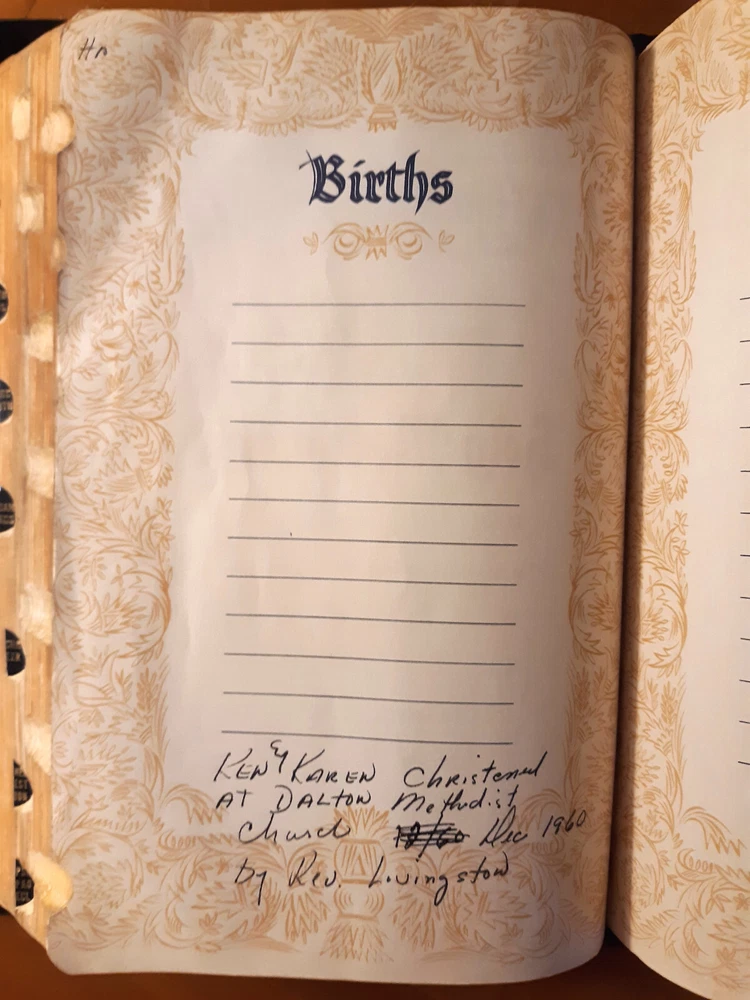 Births
Ken & Karen Christened
at Dalton Methodist
Church 12/60 Dec 1960
by Rev. Livingston